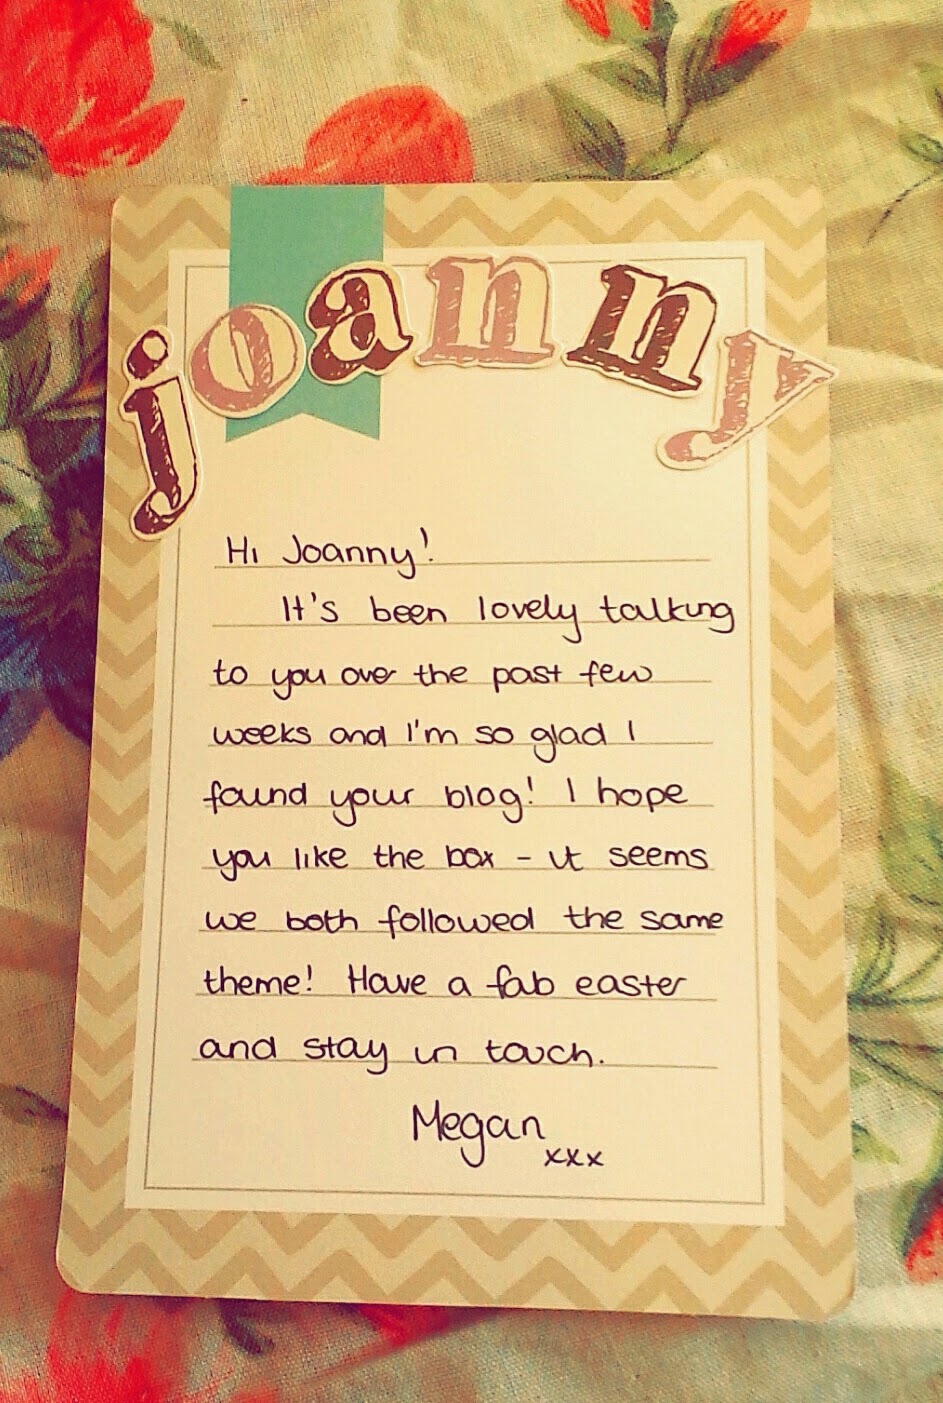 joanny
Hi Joanny!
It's been lovely talking
to you over the past few
weeks and I'm so glad I
found your blog! I hope
you like the box - it seems
we both followed the same
theme! Have a fab easter
and stay in touch.
Megan
xxx